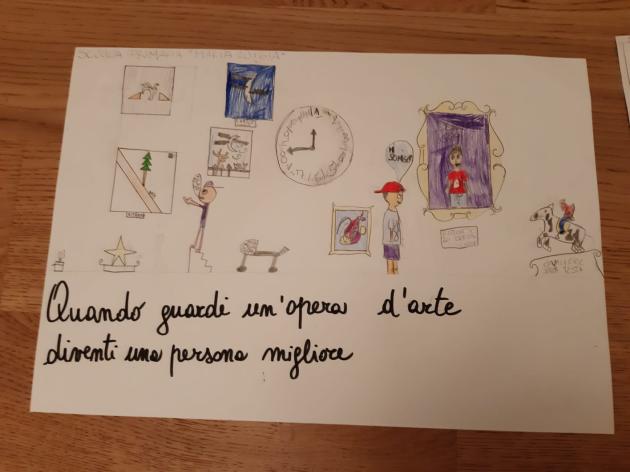 SCUOLA PRIMARIA
Quando guardi un'opera d'arte
diventi una persona migliore